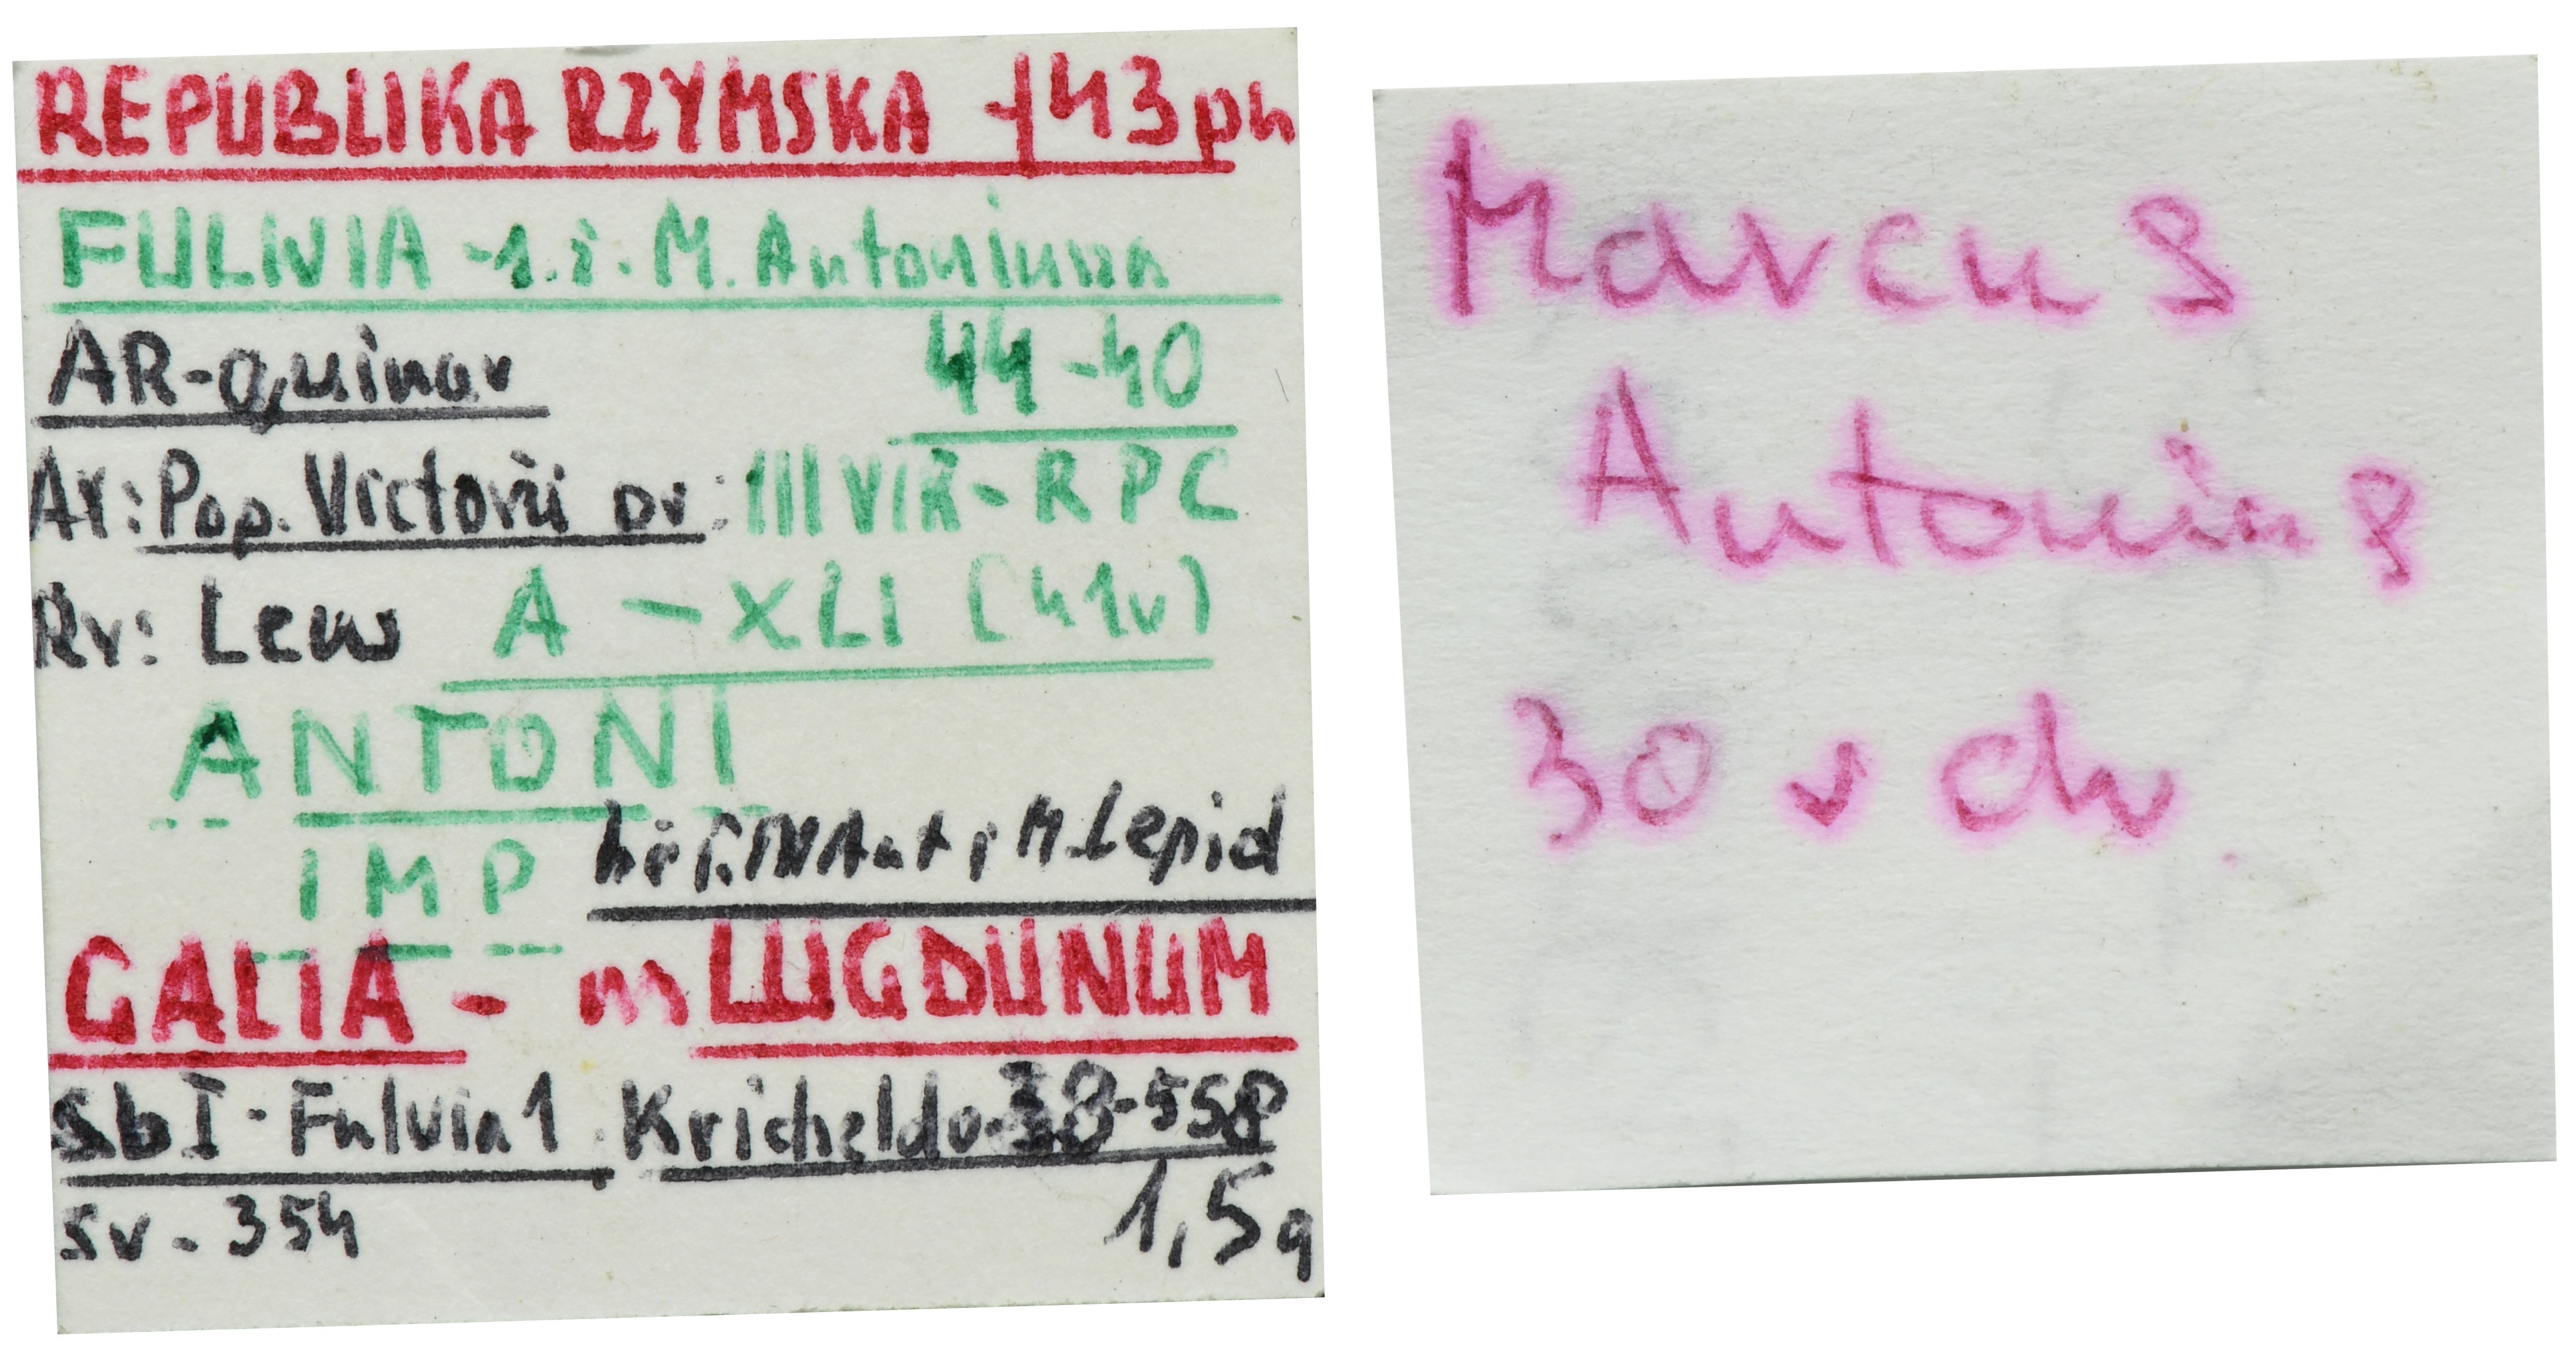 REPUBLIKA RZYMSKA -143 ph
FULWIA -1.ż. M. Antoniusza
AR-quinar 44-40
Av: Pop. Victorii pr: III VIR-R P C
Rv: Lew A - XLI (41v)
ANTONI
IMP M.Lepid
GALIA - m LUGDUNUM
SbI - Fulvia 1 Kricheldo-38-558
Sv - 354 1,5g
Marcus
Antonius
30 r ch.